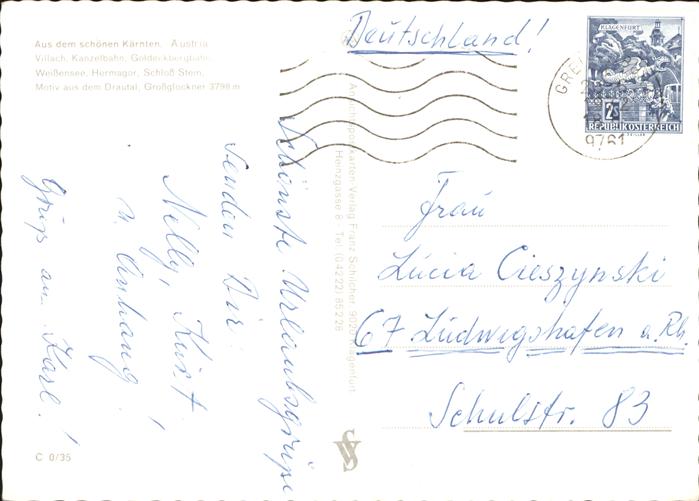 Aus dem schönen Kärnten, Austria
Villach, Kanzelbahn, Goldeckbergbahn,
Weißensee, Hermagor, Schloß Stein,
Motiv aus dem Drautal, Großglockner 3798 m
Deutschland!
KLAGENFURT
2S
REPUBLIK ÖSTERREICH
9761
Schönste Urlaubsgrüße
senden Dir
Nelly, Kurt
u. Anhang!
Gruß an Karl!
Ansichtspostkarten-Verlag Franz Schilcher 9020 Klagenfurt
Heinzgasse 8 · Tel. (04222) 85228
Frau
Lucia Cieszynski
67 Ludwigshafen a. Rh.
Schulstr. 83
C 0/35